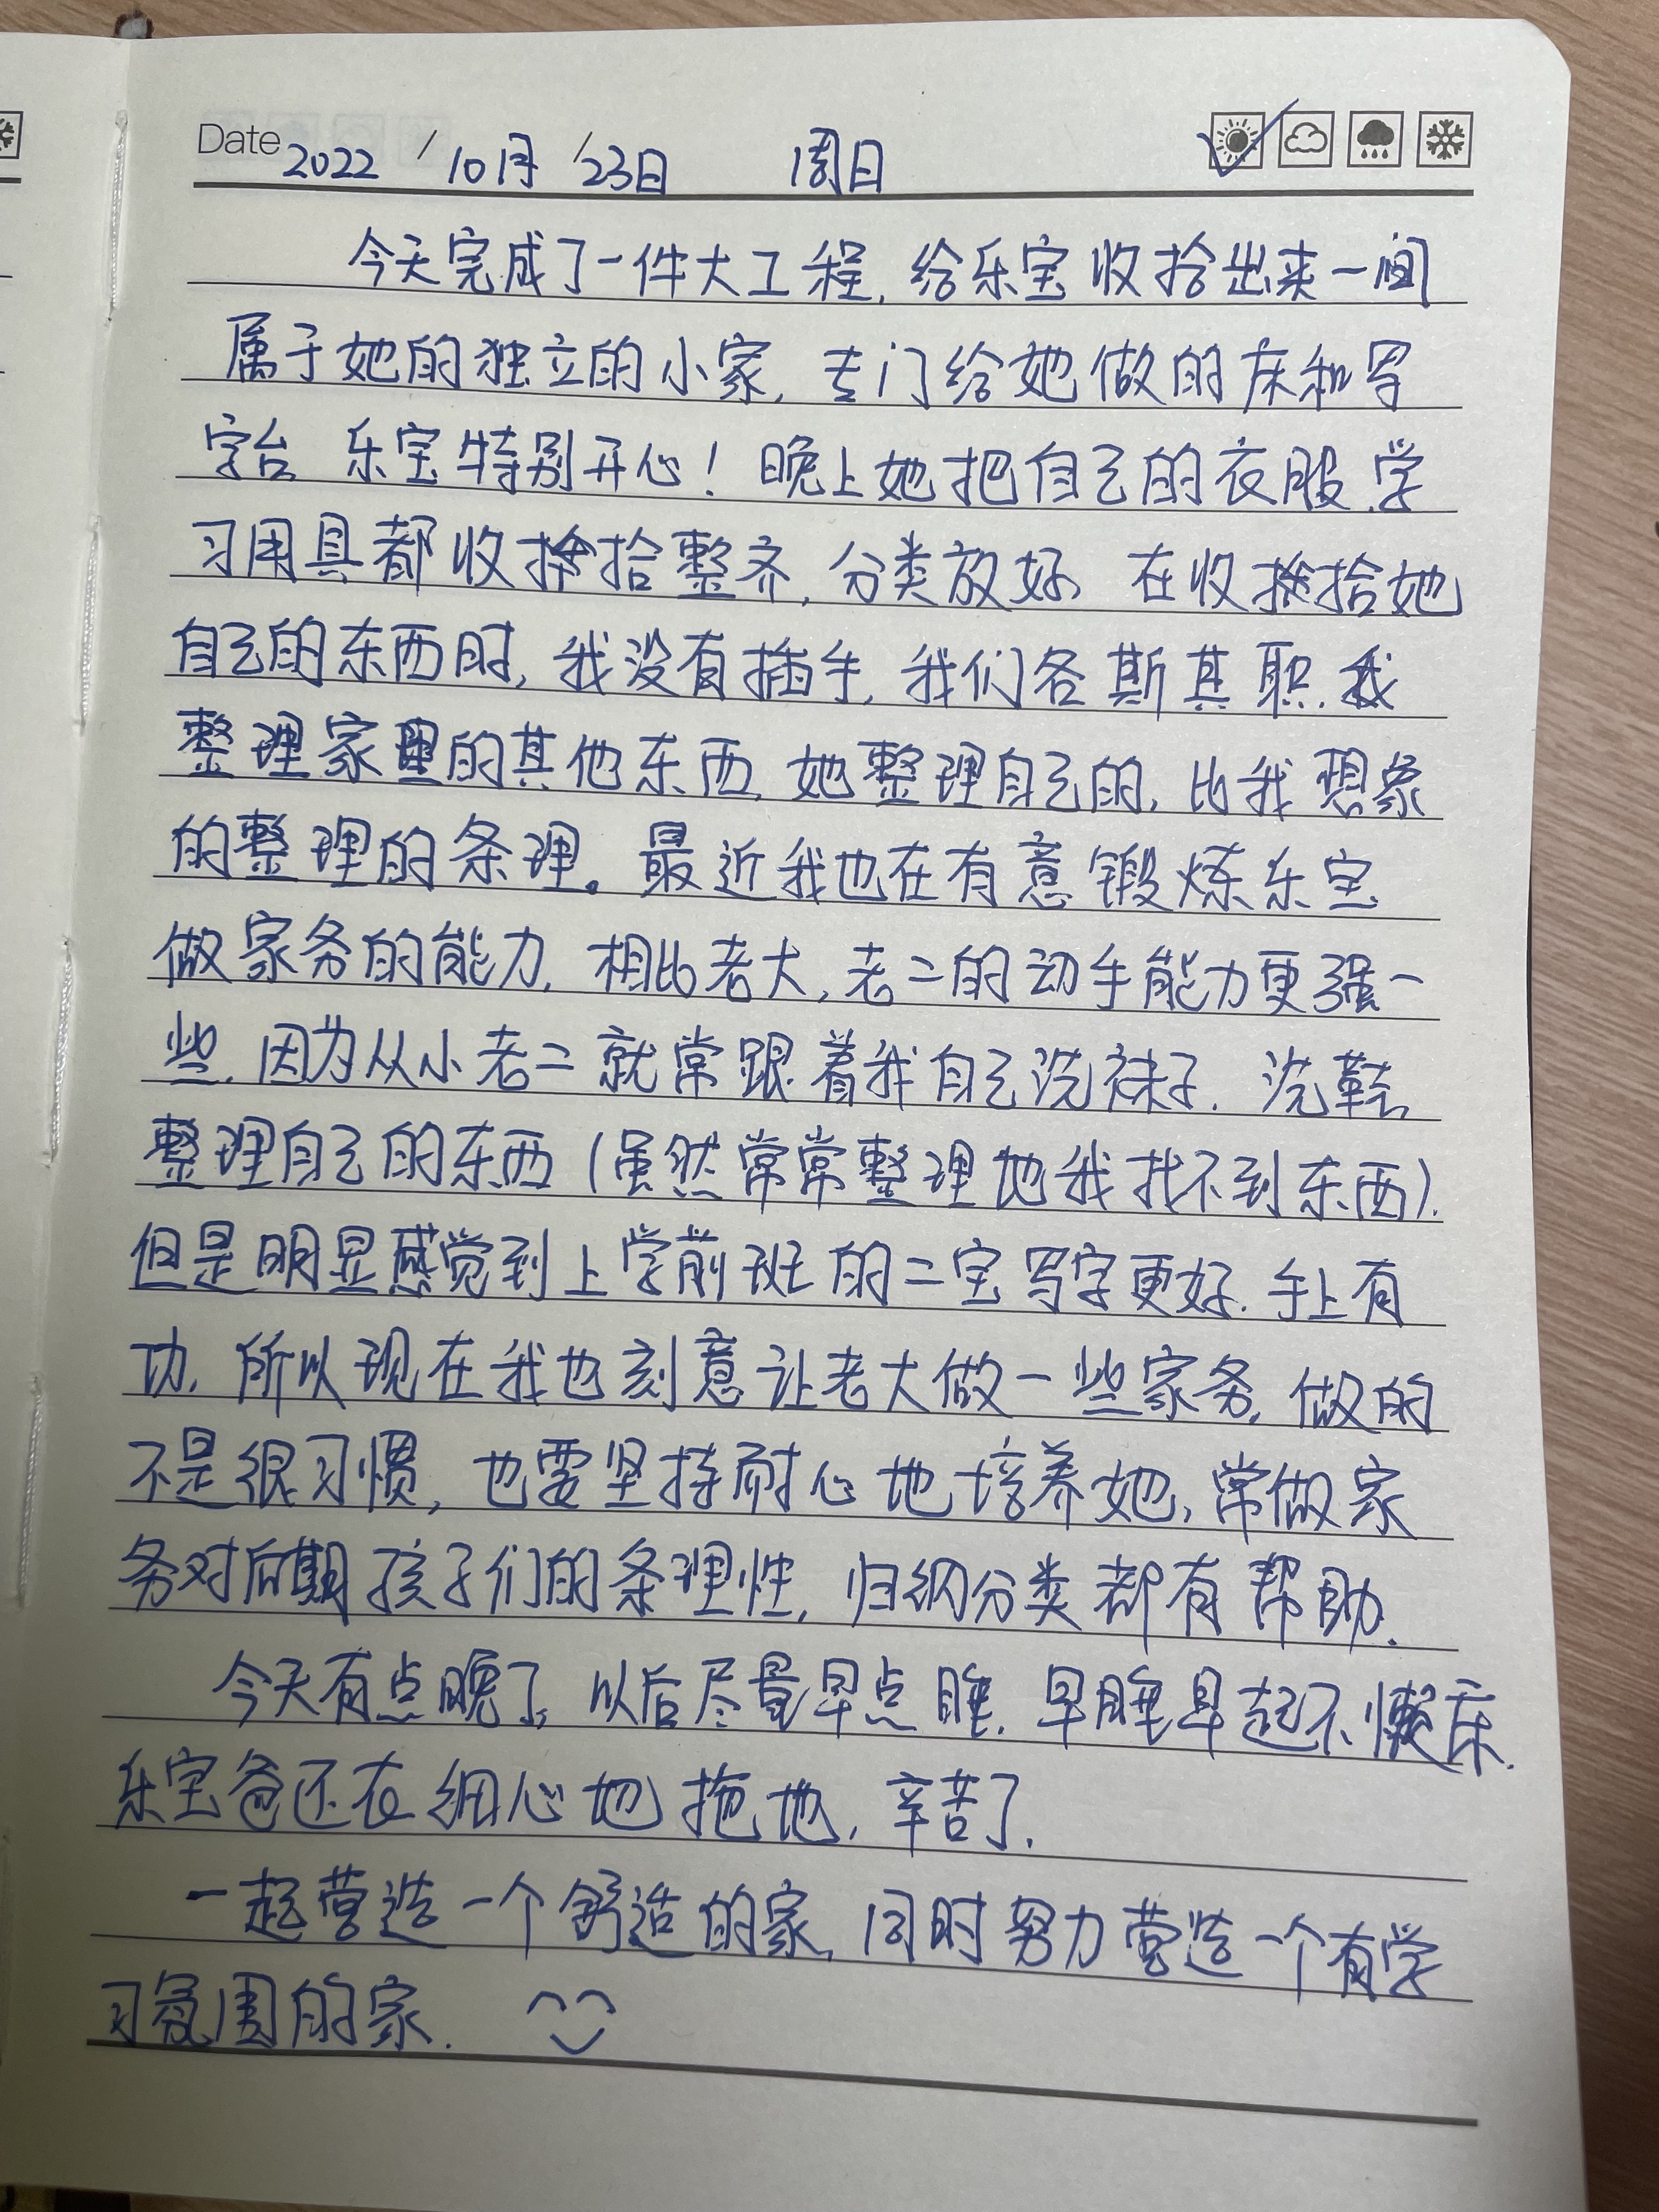 Date 2022 / 10月 / 23日 周日
今天完成了一件大工程,给乐宝收拾出来一间
属于她的独立的小家,专门给她做的床和写
字台 乐宝特别开心!晚上她把自己的衣服.学
习用具都收拾整齐,分类放好、在收拾她
自己的东西时,我没有插手,我们各斯其职.我
整理家里的其他东西,她整理自己的,比我想象
的整理的条理。最近我也在有意锻炼乐宝
做家务的能力,相比老大,老二的动手能力更强一
些.因为从小老二就常跟着我自己洗袜子.洗鞋,
整理自己的东西(虽然常常整理地我找不到东西).
但是明显感觉到上学前班的二宝写字更好.手上有
功,所以现在我也刻意让老大做一些家务,做的
不是很习惯,也要坚持耐心地培养她,常做家
务对后期孩子们的条理性,归纳分类都有帮助.
今天有点晚了,以后尽量早点睡.早睡早起不懒床.
乐宝爸还在细心地拖地,辛苦了.
一起营造一个舒适的家,同时努力营造一个有学
习氛围的家.